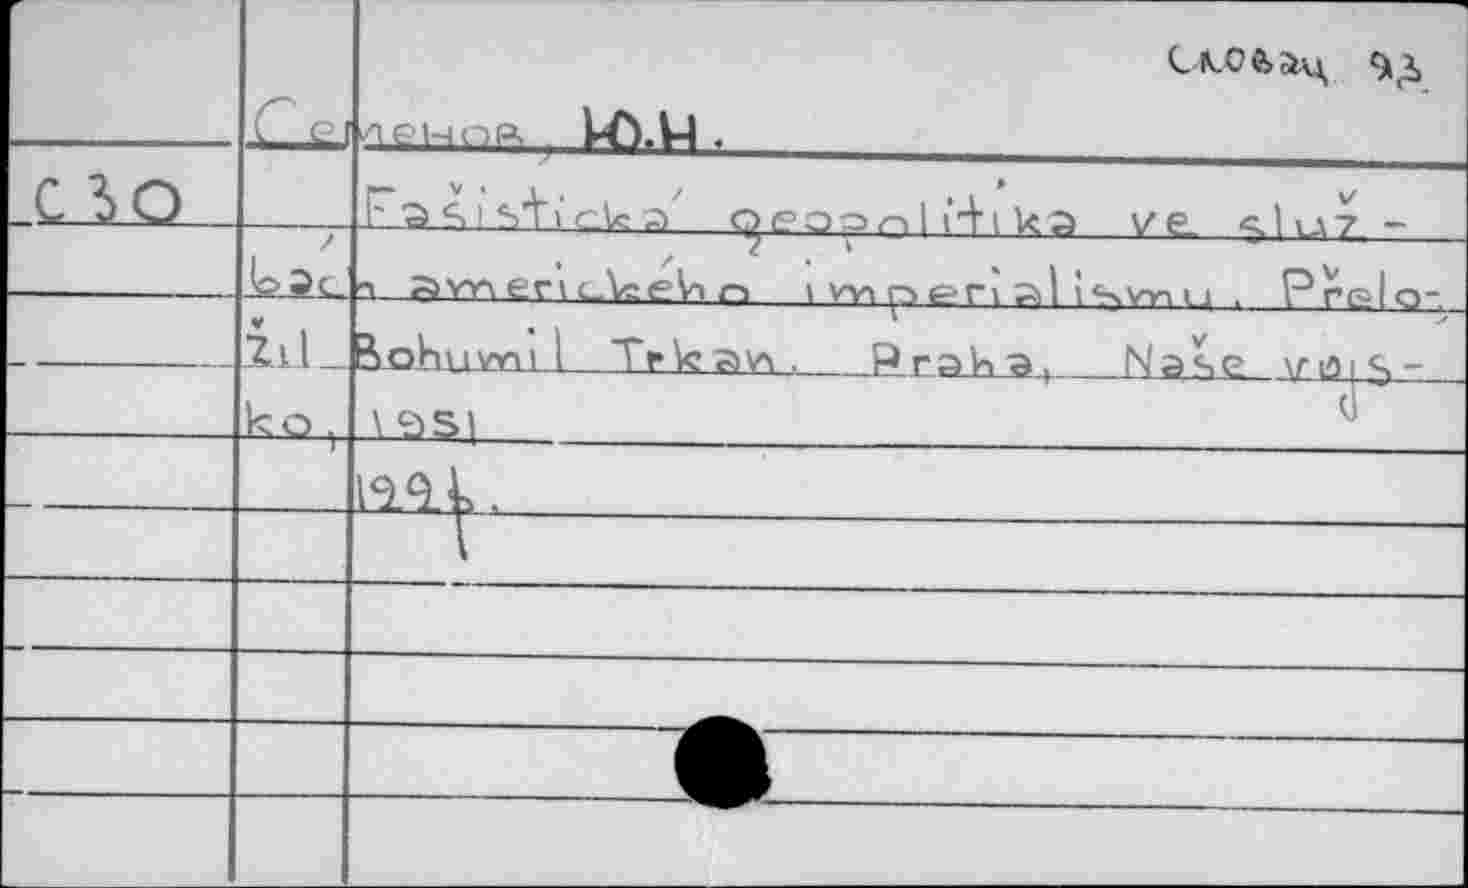 словац яз.
Семенов, Ю.Н.
С30 Fašistická geopolitika ve služ-
bách amerického imperialismu. Přelo-
žil Bohumil Trkan. Praha, Naše vojs-
ko, 1951
199 с.